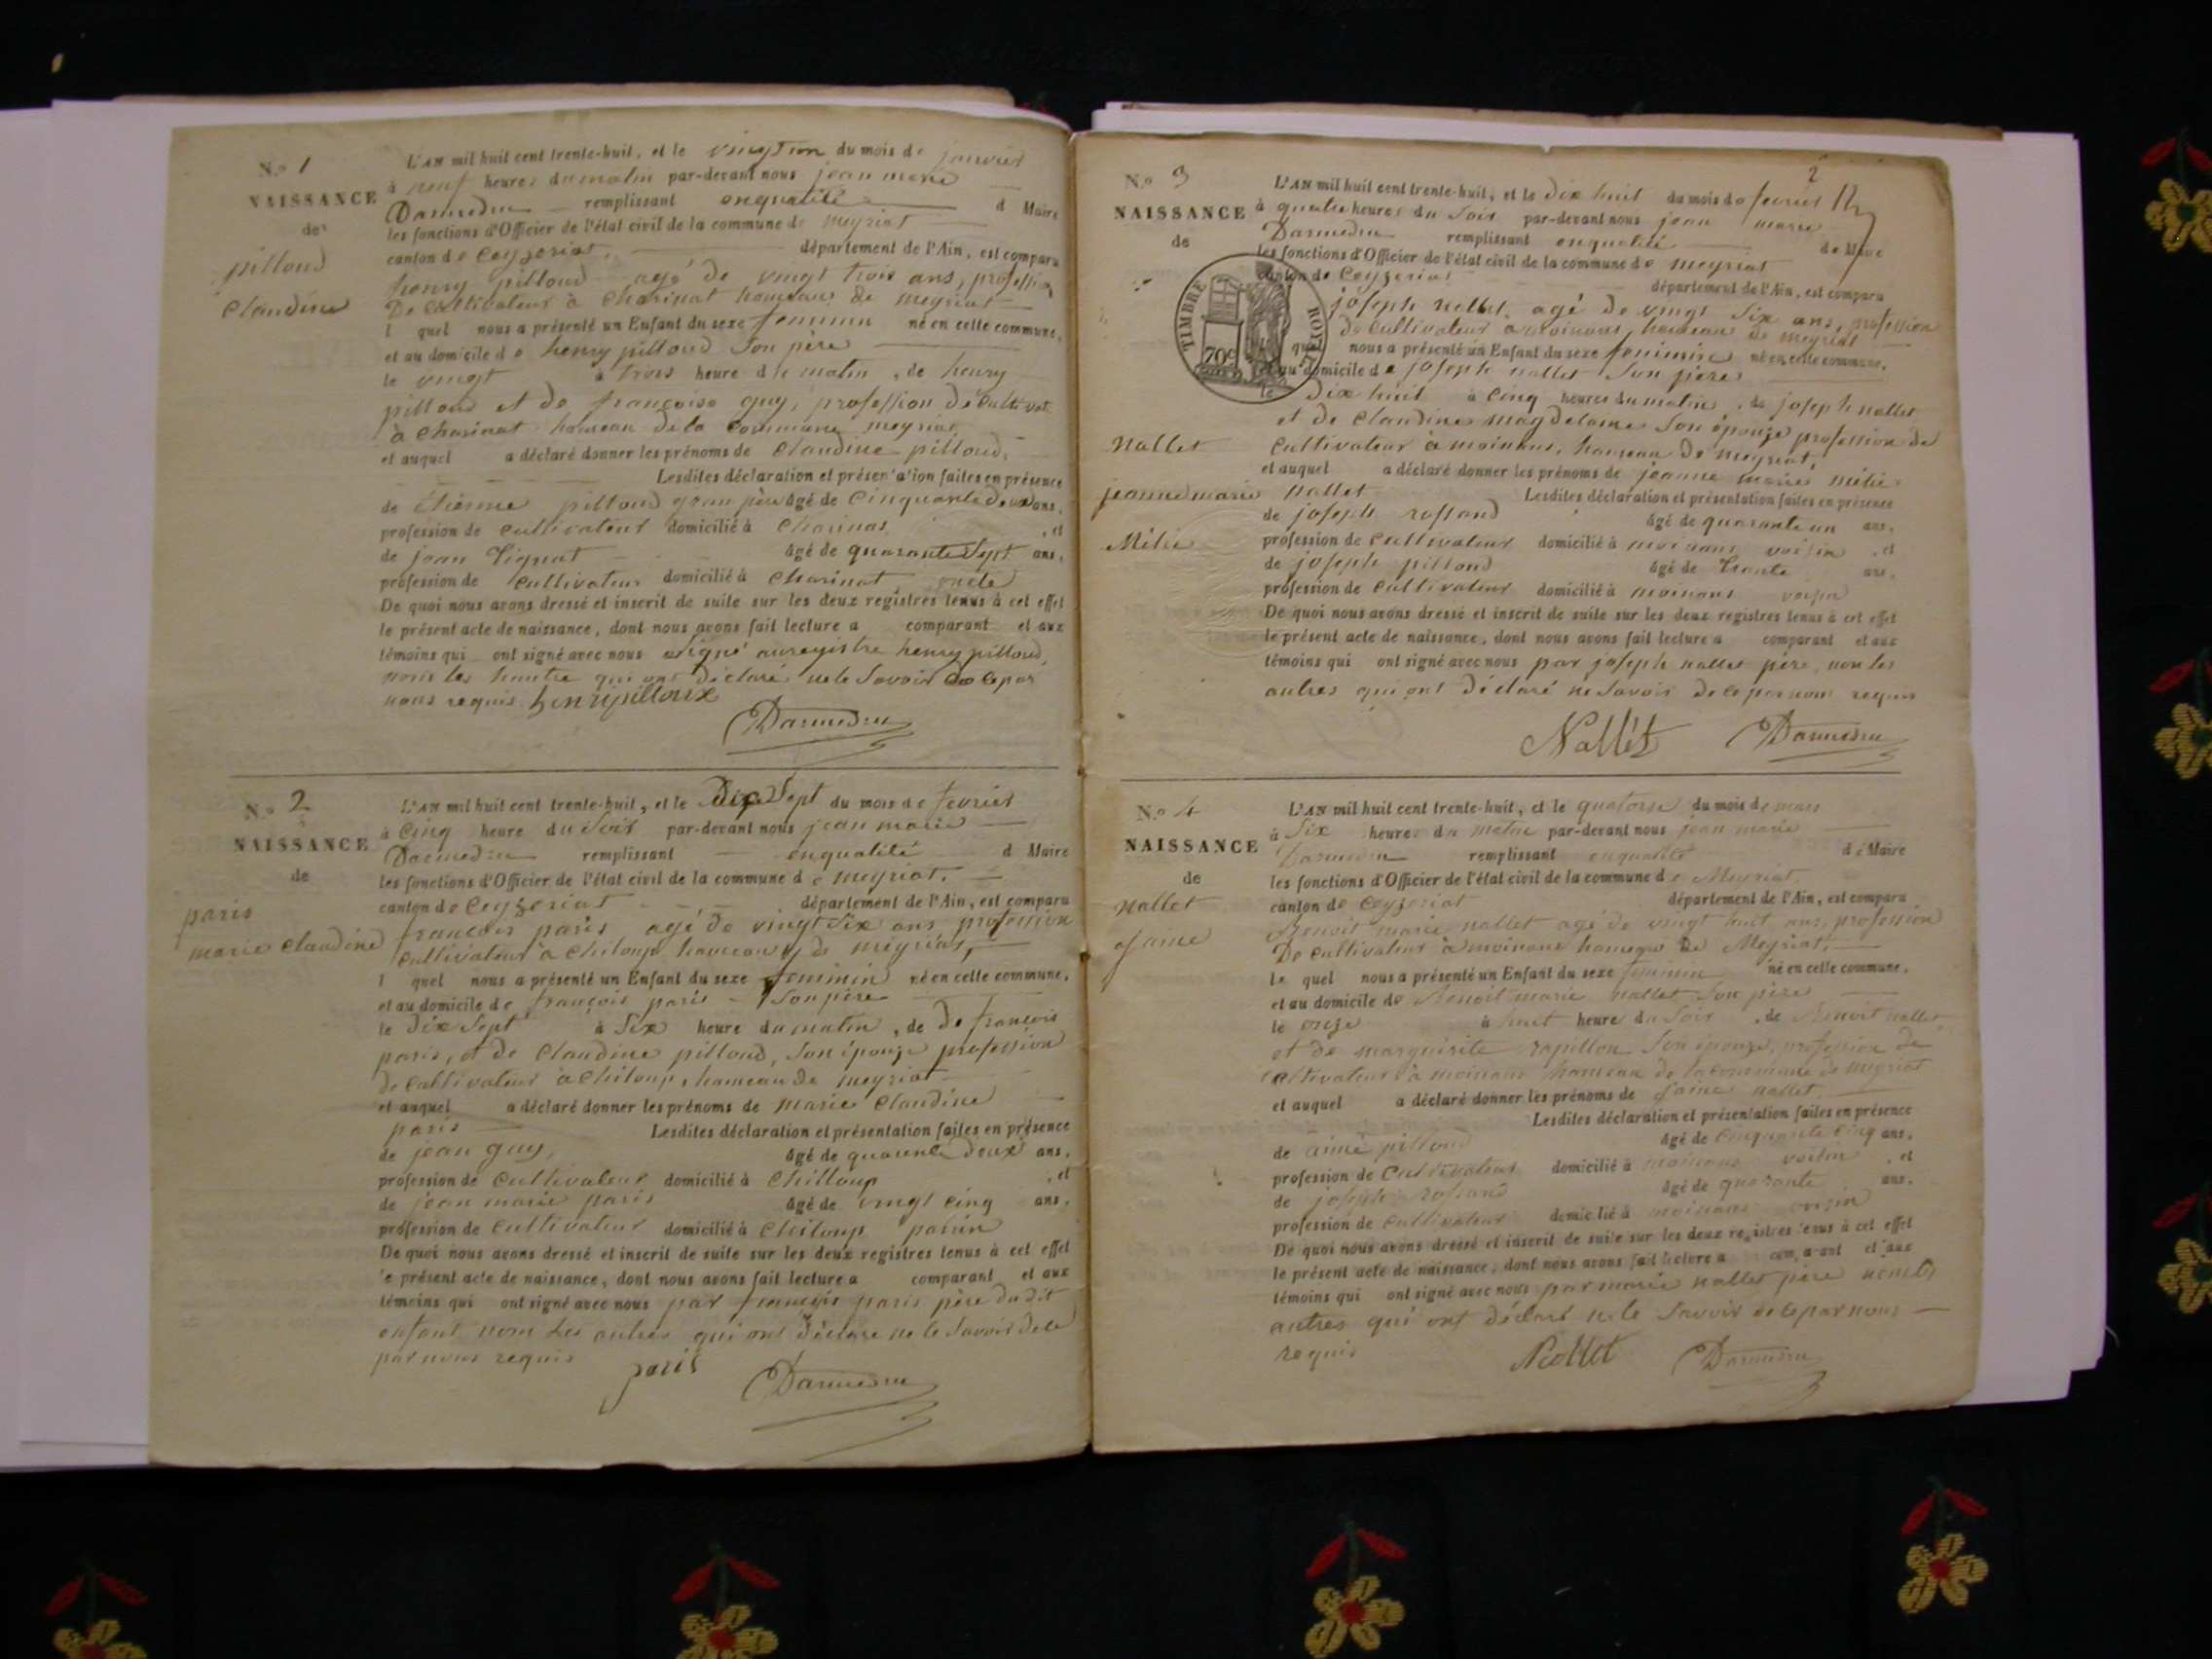 N.o 1
NAISSANCE
de
pilloud
Claudine
L'AN mil huit cent trente-huit, et le vingt un du mois de janvier
à neuf heures du matin par-devant nous jean marie
Darmedru remplissant enqualité d Maire
les fonctions d'Officier de l'état civil de la commune de meyriat
canton de Ceyzeriat, département de l'Ain, est comparu
henry pilloud agé de vingt trois ans, profession
De cultivateur à Charinat hameau de meyriat
l quel nous a présenté un Enfant du sexe feminin né en cette commune,
et au domicile de henry pilloud son père
le vingt à trois heure du matin, de henry
pilloud et de françoise guy, profession de cultivat.
à Charinat hameau dela Commune meyriat
et auquel a déclaré donner les prénoms de Claudine pilloud,
Lesdites déclaration et présentation faites en présence
de étienne pilloud gran père âgé de Cinquante Deux ans,
profession de Cultivateur domicilié à Charinas, et
de jean Vignat âgé de quarante sept ans,
profession de Cultivateur domicilié à Charinat oncle
De quoi nous avons dressé et inscrit de suite sur les deux registres tenus à cet effet
le présent acte de naissance, dont nous avons fait lecture a comparant et aux
témoins qui ont signé avec nous signé auregistre henry pilloud,
nous les hautre qui ont déclaré nele Savoir de ce par
nous requis henripilloux
Darmedru
N.o 2
NAISSANCE
de
paris
marie Claudine
L'AN mil huit cent trente-huit, et le Dix Sept du mois de fevrier
à Cinq heure du Soir par-devant nous jean marie
Darmedru remplissant enqualité d Maire
les fonctions d'Officier de l'état civil de la commune de meyriat,
canton de Ceyzeriat département de l'Ain, est comparu
francois paris agé de vingt Six ans profession
Cultivateur à Chiloup hameau de meyriat,
l quel nous a présenté un Enfant du sexe feminin né en cette commune,
et au domicile de françois paris Son père
le dix Sept à Six heure du matin, de De francois
paris, et de Claudine pilloud, Son épouze profession
de Cultivateur à Chiloup, hameau De meyriat
et auquel a déclaré donner les prénoms de marie Claudine
paris Lesdites déclaration et présentation faites en présence
de jean guy, âgé de quarente Deux ans,
profession de Cultivateur domicilié à Chilloup, et
de jean marie paris âgé de vingt cinq ans,
profession de Cultivateur domicilié à Chiloup
De quoi nous avons dressé et inscrit de suite sur les deux registres tenus à cet effet
le présent acte de naissance, dont nous avons fait lecture a comparant et aux
témoins qui ont signé avec nous par françois paris père dudit
enfant non les autres qui ont déclaré ne le Savoir de ce
par nous requis
paris
Darmedru
2
N.o 3
NAISSANCE
de
Nallet
jeanne marie
Mélie
L'AN mil huit cent trente-huit, et le Dix huit du mois de fevrier
à quatre heures du Soir par-devant nous jean marie
Darmedru remplissant enqualité de Maire
les fonctions d'Officier de l'état civil de la commune de meyriat
canton de Ceyzeriat département de l'Ain, est comparu
TIMBRE ROYAL
70c
joseph nallet, agé de vingt Six ans, profession
de Cultivateur a moinans, hameau de meyriat
quel nous a présenté un Enfant du sexe feminine né en cette commune,
et au domicile de joseph nallet Son père
le Dix huit à Cinq heures du matin, de joseph nallet
et de Claudine magdelaine Son épouze profession de
Cultivateur à moinans, hameau de meyriat,
et auquel a déclaré donner les prénoms de jeanne marie mélie
nallet Lesdites déclaration et présentation faites en présence
de joseph rossand âgé de quarante un ans,
profession de Cultivateur domicilié à moinans voisin, et
de joseph pilloud âgé de trante ans,
profession de Cultivateur domicilié à moinans voisin
De quoi nous avons dressé et inscrit de suite sur les deux registres tenus à cet effet
le présent acte de naissance, dont nous avons fait lecture a comparant et aux
témoins qui ont signé avec nous par joseph nallet père non les
autres qui ont déclaré ne Savoir de ce par nous requis
Nallet
Darmedru
N.o 4
NAISSANCE
de
Nallet
jaine
L'AN mil huit cent trente-huit, et le quatorse du mois de mars
à Six heures du matin par-devant nous jean marie
Darmedru remplissant enqualité de Maire
les fonctions d'Officier de l'état civil de la commune de Meyriat,
canton de Ceyzeriat département de l'Ain, est comparu
Benoit marie nallet agé de vingt huit ans, profession
De Cultivateur à moinans hameau de Meyriat,
le quel nous a présenté un Enfant du sexe feminin né en cette commune,
et au domicile de Benoit marie nallet Son père
le onze à huit heure du Soir, de Benoit nallet
et de marguerite rapillon Son épouze, profession de
Cultivateur à moinans hameau de la commune de meyriat
et auquel a déclaré donner les prénoms de jaine nallet
Lesdites déclaration et présentation faites en présence
de aimé pilloud âgé de Cinquante Cinq ans,
profession de Cultivateur domicilié à moinans voisin, et
de joseph rossand âgé de quarante ans,
profession de Cultivateur domicilié à moinans voisin
De quoi nous avons dressé et inscrit de suite sur les deux registres tenus à cet effet
le présent acte de naissance, dont nous avons fait lecture a comparant et aux
témoins qui ont signé avec nous par marie nallet père non les
autres qui ont déclaré ne le Savoir de ce par nous
requis
Nallet
Darmedru